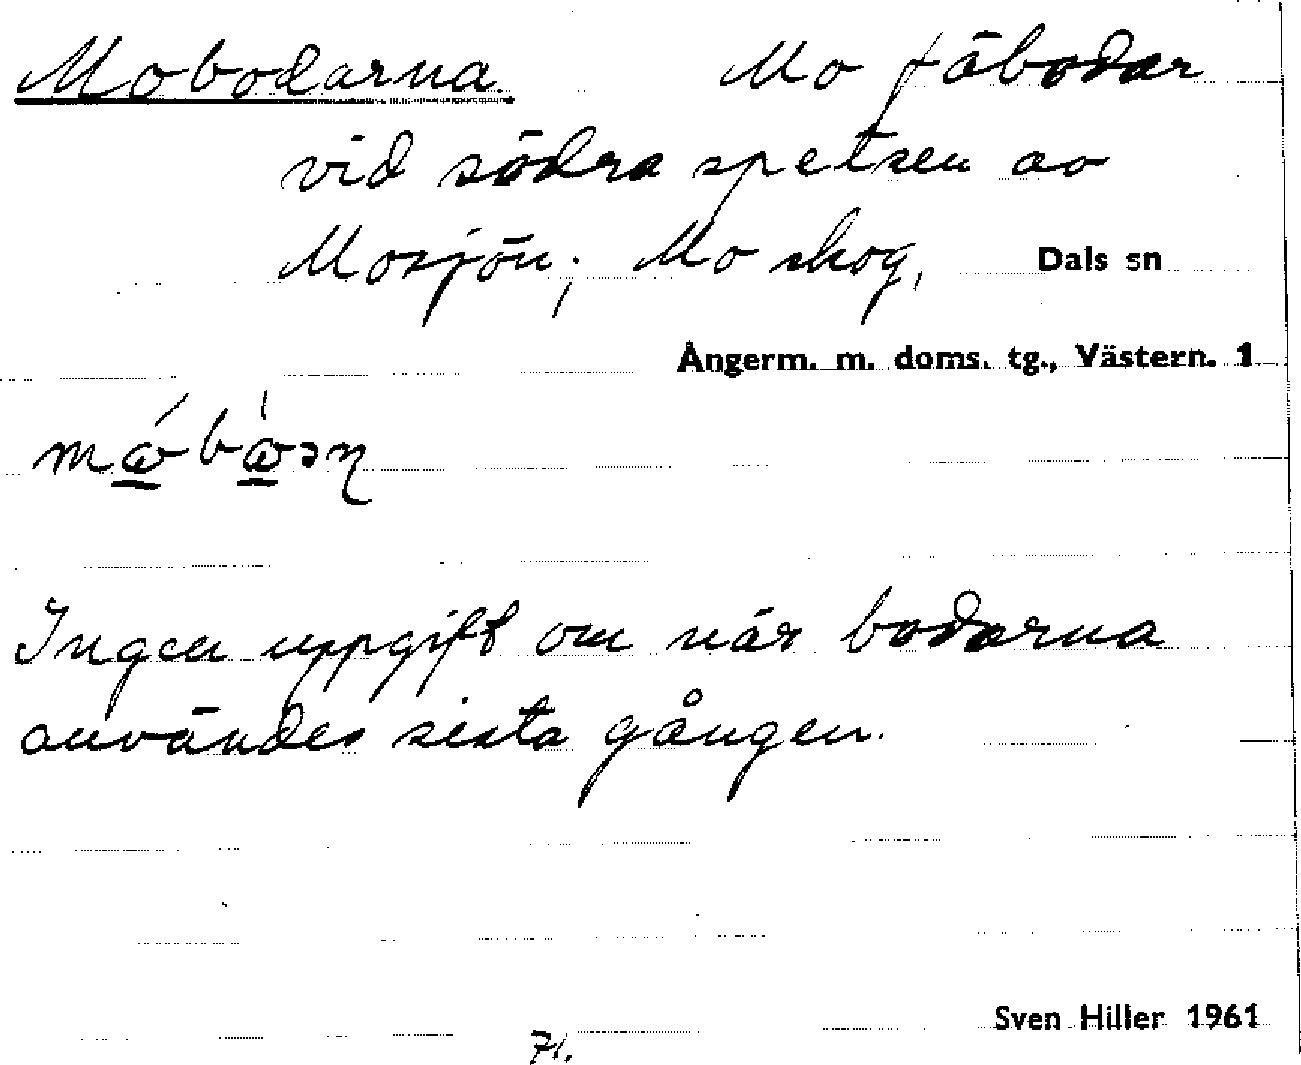 Mobodarna. Mo fäbodar
vid södra spetsen av
Mosjön; Mo skog, Dals sn
Ångerm. m. doms. tg., Västern. 1
Ingen uppgift om när bodarna
användes sista gången.
Sven Hiller 1961
71.